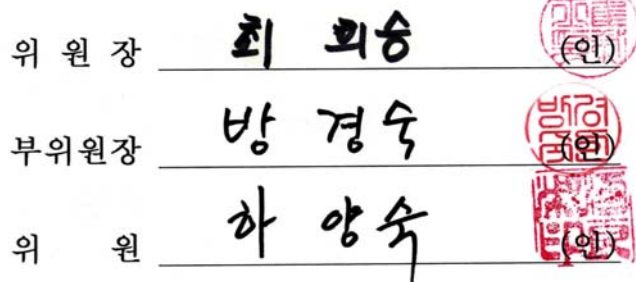 위 원 장 최 희승 (인)
부위원장 방 경숙 (인)
위 원 하 양숙 (인)